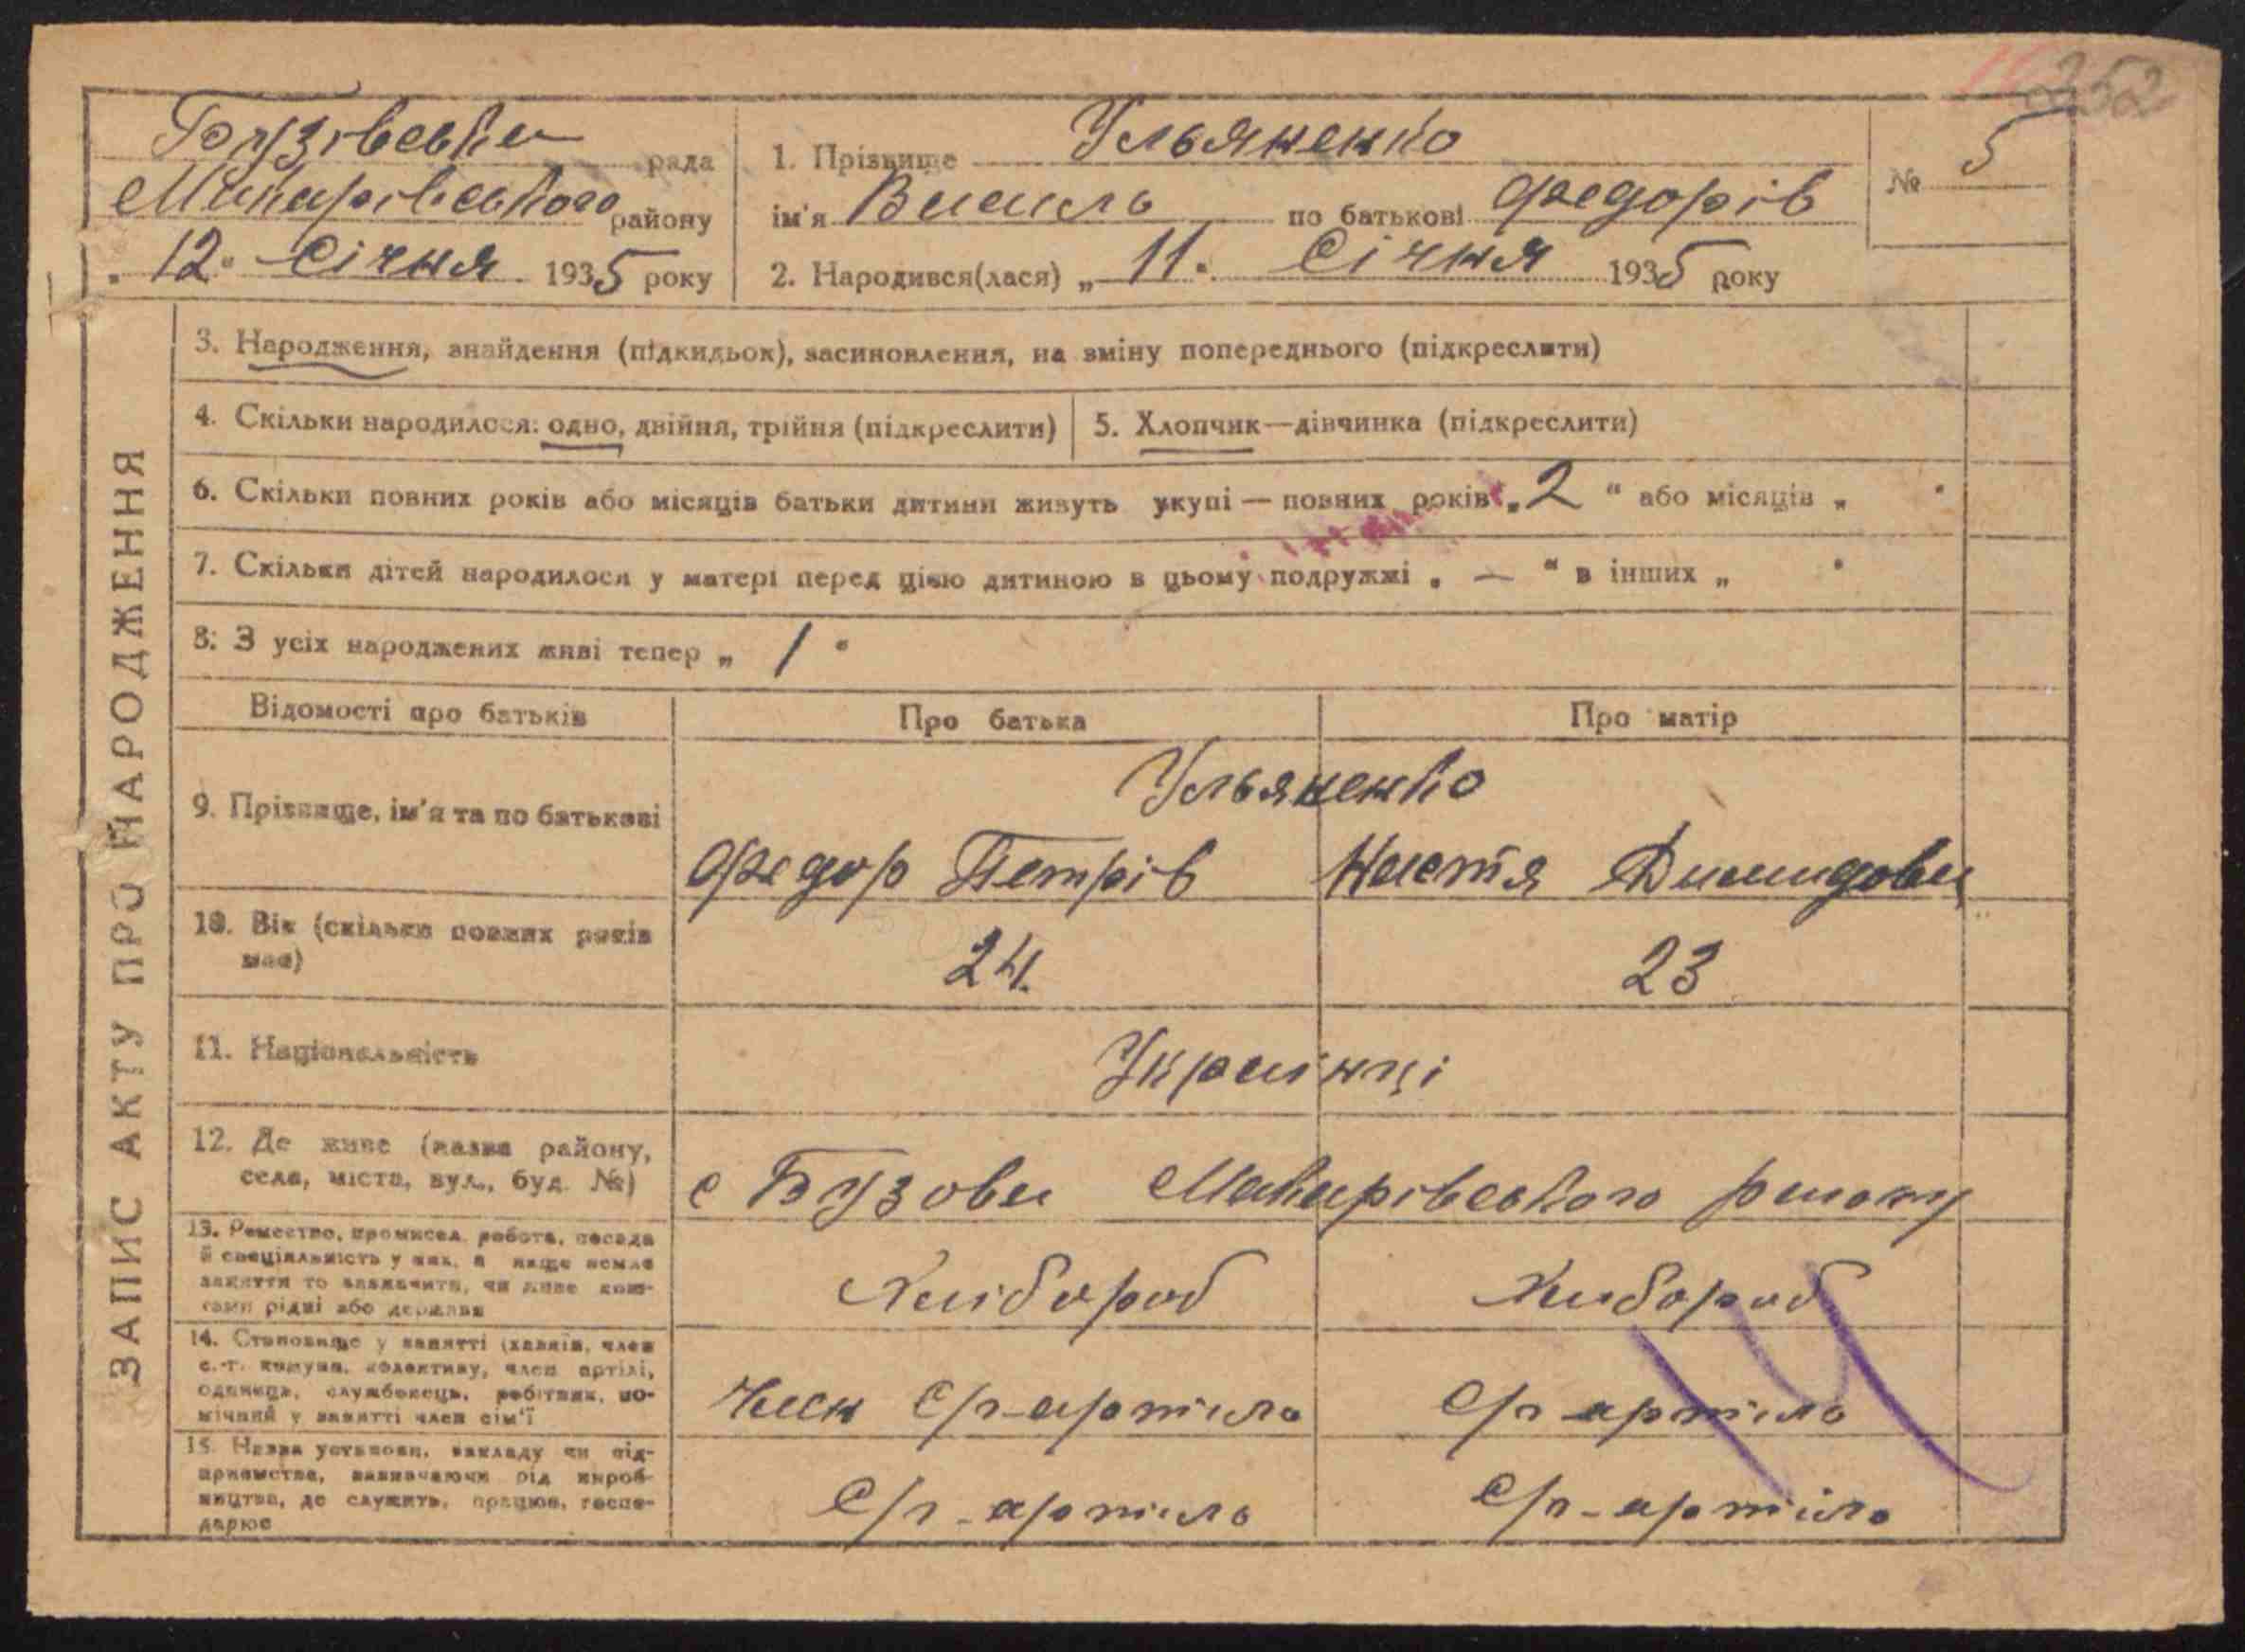 352
Бузівська рада
Макарівського району
„12" Січня 1935 року
1. Прізвище Ульяненко
ім'я Василь по батькові Федорів
№ 5
2. Народився(лася) „11" Січня 1935 року
ЗАПИС АКТУ ПРО НАРОДЖЕННЯ
3. Народження, знайдення (підкидьок), засиновлення, на зміну попереднього (підкреслити)
4. Скільки народилося: одно, двійня, трійня (підкреслити)
5. Хлопчик—дівчинка (підкреслити)
6. Скільки повних років або місяців батьки дитини живуть укупі — повних років „2" або місяців „ "
7. Скільки дітей народилося у матері перед цією дитиною в цьому подружжі „ — " в інших „ "
8. З усіх народжених живі тепер „ 1 "
Відомості про батьків
Про батька
Про матір
9. Прізвище, ім'я та по батькові
Ульяненко
Федор Петрів
Настя Димидова
10. Вік (скільки повних років
має)
24.
23
11. Національність
Українці
12. Де живе (назва району,
села, міста, вул., буд. №)
с Бузова Макарівського району
13. Ремество, промисел, робота, посада
й спеціальність у них, а якще немає
заняття то зазначити, чи живе кош-
тами рідні або держави
Хлібороб
Хлібороб
14. Становище у занятті (хазяїн, член
с.-г. комуни, колективу, член артілі,
одинець, службовець, робітник, по-
мічний у занятті член сім'ї
Член С/г-артіль
С/г артіль
15. Назва установи, закладу чи під-
приємства, зазначаючи рід вироб-
ництва, де служить, працює, госпо-
дарює
С/г-артіль
С/г-артіль